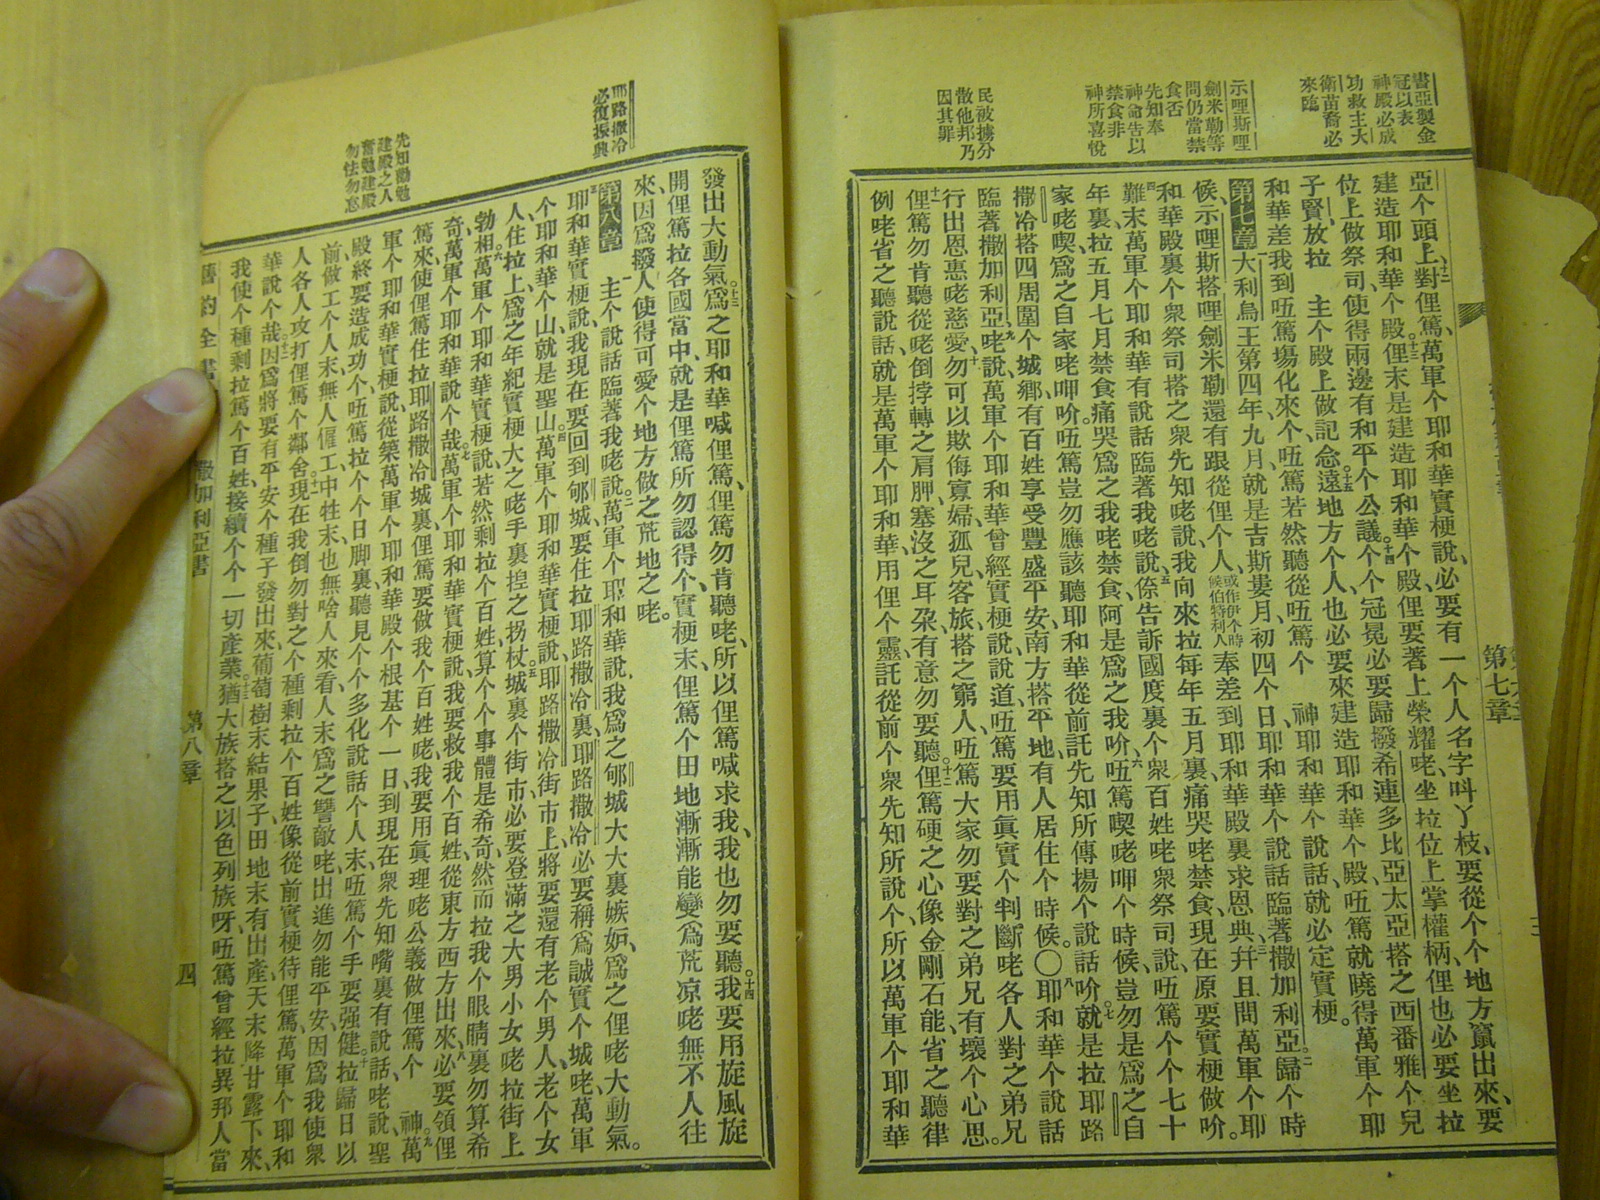 書亞製金
冠以表
神殿必成
功救主大
衛苗裔必
來臨
示哩斯哩
劍米勒等
問仍當禁
食否
先知奉
神命告以
禁食非
神所喜悅
民被擄分
散他邦乃
因其罪
第七章
亞个頭上、對俚篤、萬軍个耶和華實梗說、必要有一个人名字呌丫枝、要從个个地方竄出來、要
建造耶和華个殿、俚末是建造耶和華个殿、俚要著上榮耀咾、坐拉位上掌權柄、俚也必要坐拉
位上做祭司、使得兩邊有和平个公議、个个冠冕必要歸撥希連多比亞太亞搭之西番雅个兒
子賢、放拉 主个殿上做記念、遠地方个人、也必要來建造耶和華个殿、㑚篤就曉得萬軍个耶
和華差我到㑚篤塲化來个、㑚篤若然聽從㑚篤个 神耶和華个說話、就必定實梗。
第七章 大利烏王第四年、九月、就是吉斯婁月、初四个日、耶和華个說話臨著撒加利亞、歸个時
候、示哩斯搭哩劍米勒還有跟從俚个人、或作伊个時候伯特利人奉差到耶和華殿裏求恩典、幷且問萬軍个耶
和華殿裏个衆祭司搭之衆先知咾說、我向來拉每年五月裏痛哭咾禁食、現在原要實梗做吤。
難末萬軍个耶和華有說話臨著我咾說、倷告訴國度裏个衆百姓咾衆祭司說、㑚篤个个七十
年裏、拉五月七月禁食痛哭、爲之我咾禁食、阿是爲之我吤、㑚篤喫咾呷个時候、豈勿是爲之自
家咾喫、爲之自家咾呷吤、㑚篤豈勿應該聽耶和華從前託先知所傳揚个說話吤、就是拉耶路
撒冷搭四周圍个城鄕、有百姓享受豐盛平安、南方搭平地、有人居住个時候。〇耶和華个說話
臨著撒加利亞咾說、萬軍个耶和華曾經實梗說、說道、㑚篤要用眞實个判斷咾各人對之弟兄
行出恩惠咾慈愛、勿可以欺侮寡婦孤兒客旅搭之窮人、㑚篤大家勿要對之弟兄有壞个心思。
俚篤勿肯聽從咾倒挬轉之肩胛、塞沒之耳朶、有意勿要聽、俚篤硬之心像金剛石能、省之聽律
例咾省之聽說話、就是萬軍个耶和華、用俚个靈、託從前个衆先知所說个、所以萬軍个耶和華
耶路撒冷
必復振興
先知勸勉
建殿之人
奮勉建殿
勿怯勿怠
發出大動氣、爲之耶和華喊俚篤、俚篤勿肯聽咾、所以俚篤喊求我、我也勿要聽。我要用旋風旋
開俚篤拉各國當中、就是俚篤所勿認得个、實梗末、俚篤个田地漸漸能變爲荒凉咾無不人往
來、因爲撥人使得可愛个地方做之荒地之咾。
第八章 主个說話臨著我咾說、萬軍个耶和華說、我爲之郇城大大裏嫉妬、爲之俚咾大動氣。
耶和華實梗說、我現在要回到郇城、要住拉耶路撒冷裏、耶路撒冷必要稱爲誠實个城咾、萬軍
个耶和華个山就是聖山。萬軍个耶和華實梗說、耶路撒冷街市上將要還有老个男人、老个女
人、住拉上、爲之年紀實梗大之咾手裏捏之拐杖、城裏个街市必要登滿之大男小女咾拉街上
勃相、萬軍个耶和華實梗說、若然剩拉个百姓、算个个事體是希奇、然而拉我个眼睛裏勿算希
奇、萬軍个耶和華說个哉、萬軍个耶和華實梗說、我要救我个百姓、從東方西方出來、必要領俚
篤來、使俚篤住拉耶路撒冷城裏、俚篤要做我个百姓咾、我要用眞理咾公義做俚篤个 神。萬
軍个耶和華實梗說、從築萬軍个耶和華殿个根基个一日到現在、衆先知嘴裏有說話咾說、聖
殿終要造成功个、㑚篤拉个个日脚裏聽見个个多化說話个人末、㑚篤个手要强健、拉歸日以
前做工个人末、無人僱工、中牲末也無啥人來看、人末爲之讐敵咾出進勿能平安、因爲我使衆
人各人攻打俚篤个鄰舍、現在我倒勿對之个種剩拉个百姓像從前實梗待俚篤、萬軍个耶和
華說个哉、因爲將要有平安个種子發出來、葡萄樹末結果子、田地末有出產、天末降甘露下來、
我使个種剩拉篤个百姓接續个个一切產業、猶大族搭之以色列族呀、㑚篤曾經拉異邦人當
舊約全書 撒加利亞書 第八章 四